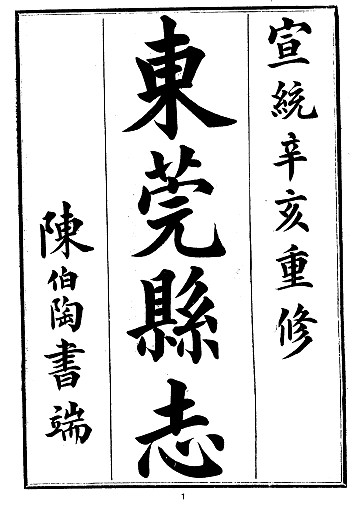 宣統辛亥重修
東莞縣志
陳伯陶書端
1